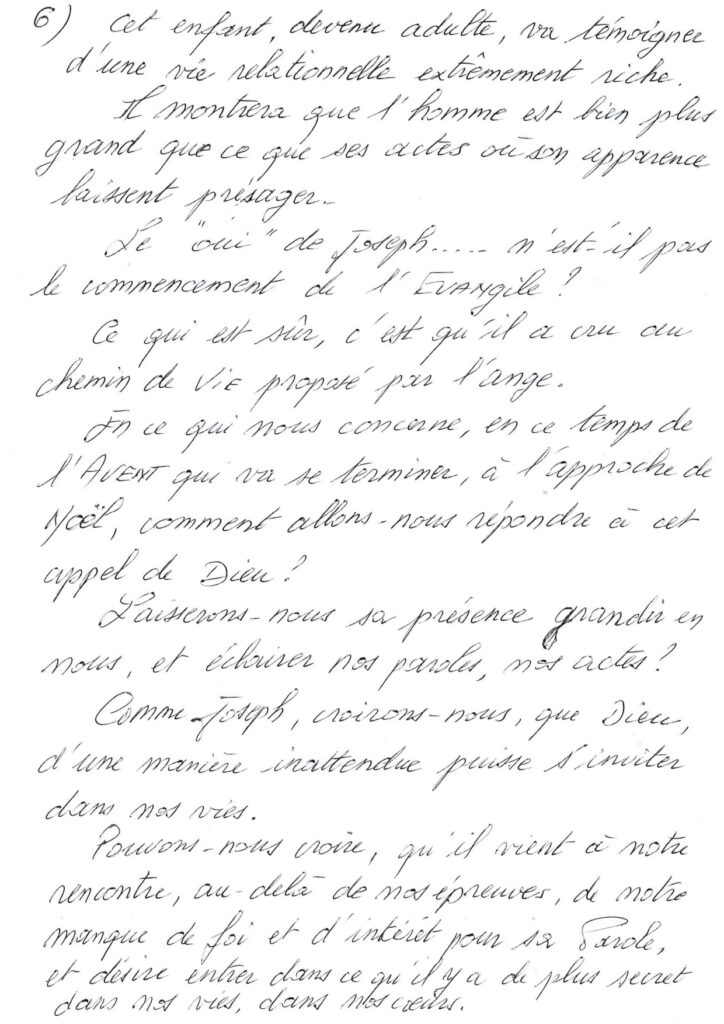 6) Cet enfant, devenu adulte, va témoigner
d'une vie relationnelle extrêmement riche.
Il montrera que l'homme est bien plus
grand que ce que ses actes où son apparence
laissent présager.
Le "oui" de Joseph..... n'est-il pas
le commencement de l'EVANgile?
Ce qui est sûr, c'est qu'il a cru au
chemin de ViE proposé par l'ange.
En ce qui nous concerne, en ce temps de
l'AVENT qui va se terminer, à l'approche de
Noël, comment allons-nous répondre à cet
appel de Dieu?
Laisserons-nous sa présence grandir en
nous, et éclairer nos paroles, nos actes?
Comme Joseph, croirons-nous, que Dieu,
d'une manière inattendue puisse s'inviter
dans nos vies.
Pouvons-nous croire, qu'il vient à notre
rencontre, au-delà de nos épreuves, de notre
manque de foi et d'intérêt pour sa Parole,
et désire entrer dans ce qu'il y a de plus secret
dans nos vies, dans nos cœurs.